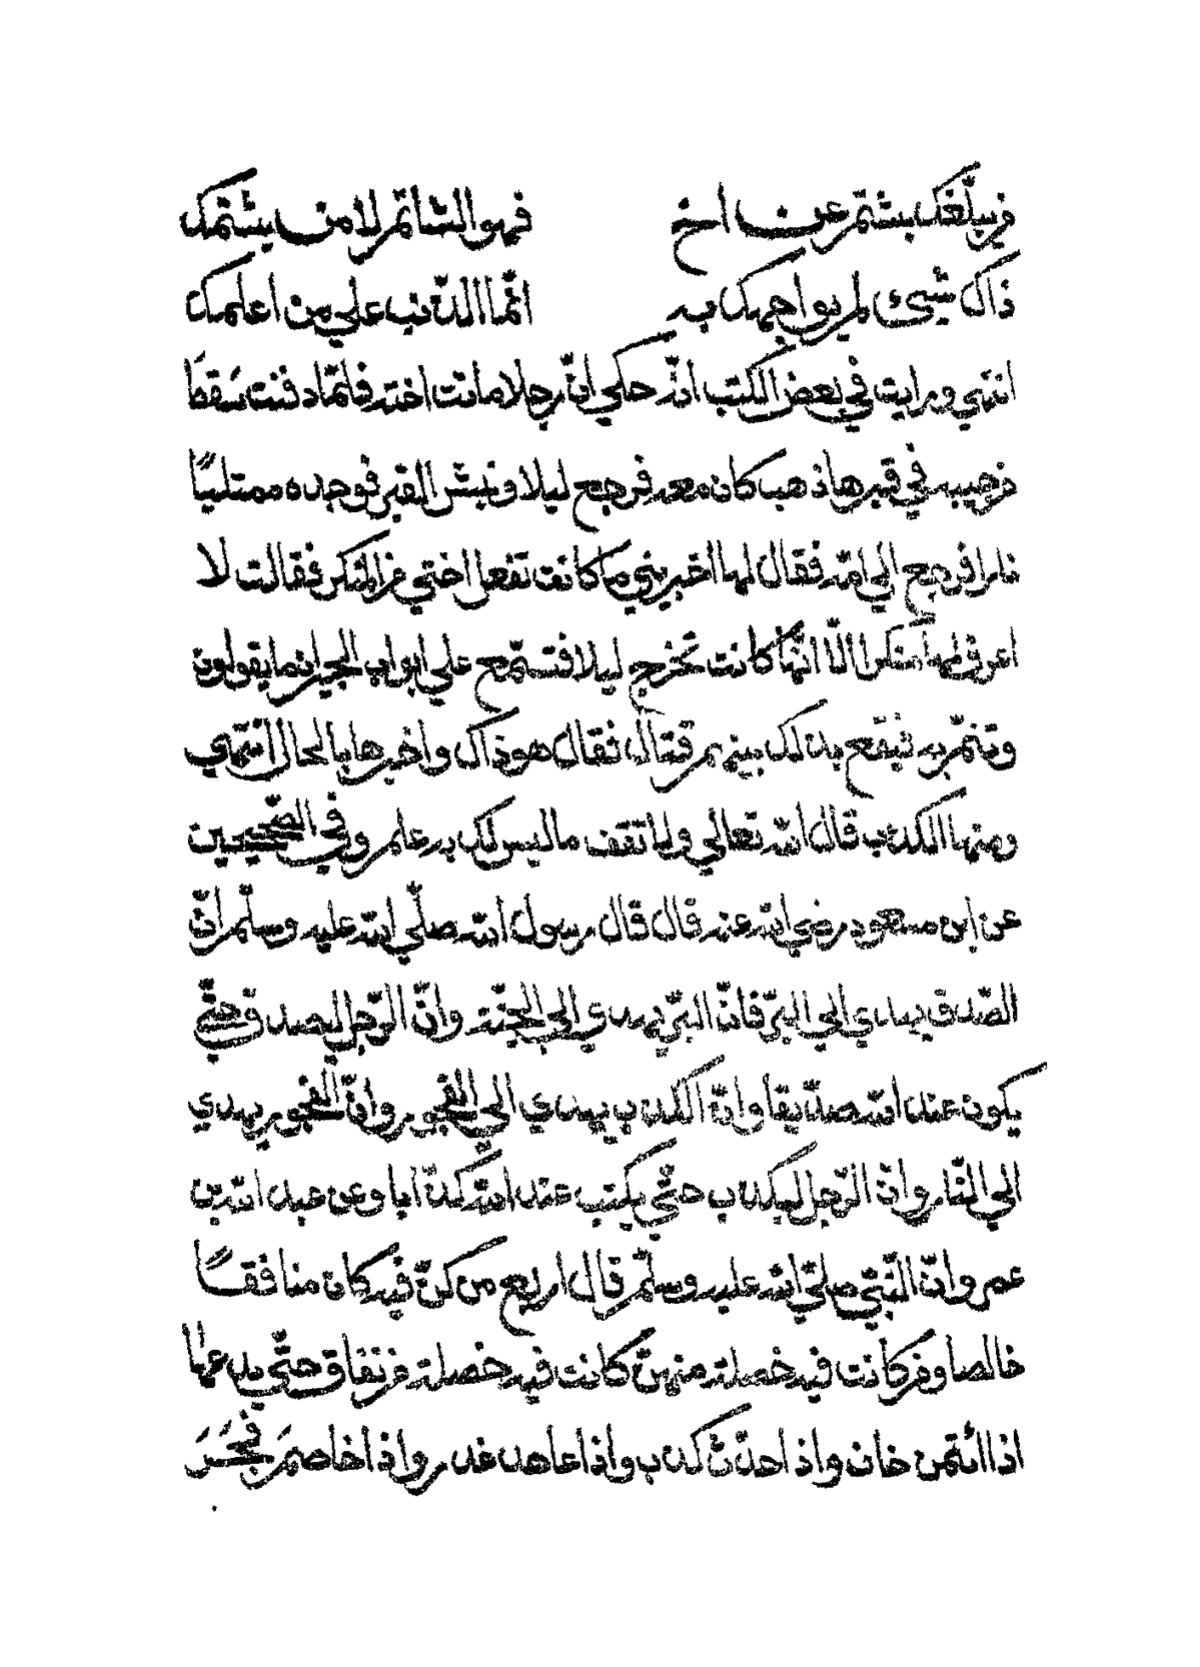 من يبلّغك بشتم عن اخ فهو الشاتم لا من يشتمك
ذاك شيئ لم يواجهك به انّما الذنب علي من اعلمك
انتهي ورايت في بعض الكتب انّه حكي انّ رجلا ماتت اخته فلمّا دفنت سَقطَ
من جيبه في قبرها ذهب كان معه فرجع ليلا ونبش القبر فوجده ممتلياً
نارا فرجع الي امّه فقال لها اخبريني ما كانت تفعل اختي من المنكر فقالت لا
اعرف لها منكرا الّا انّها كانت تخرج ليلا فتستمّع علي ابواب الجيران ما يقولون
وتنمّ به فيقع بذلك بينهم قتال فقال هو ذاك واخبرها بالحال انتهي
ومنها الكذب قال الله تعالي ولا تقف ما ليس لك به علم وفي الصّحيحين
عن ابن مسعود رضي الله عنه قال قال رسول الله صلّي الله عليه وسلّم انّ
الصّدق يهدي الي البرّ فانّ البرّ يهدي الي الجنّة وانّ الرّجل ليصدق حتّي
يكون عند الله صدّيقا وانّ الكذب يهدي الي الفجور وانّ الفجور يهدي
الي النّار وانّ الرّجل ليكذب حتّي يكتب عند الله كذّابا وعن عبد الله بن
عمر وانّ النّبيّ صلّي الله عليه وسلّم قال اربع من كنّ فيه كان منافقـًا
خالصا ومن كانت فيه خصلة منهنّ كانت فيه خصلة من نفاق حتّي يدعها
اذا ائتمن خان واذا حدّث كذب واذا عاهد غدر واذا خاصم فَجَرَ